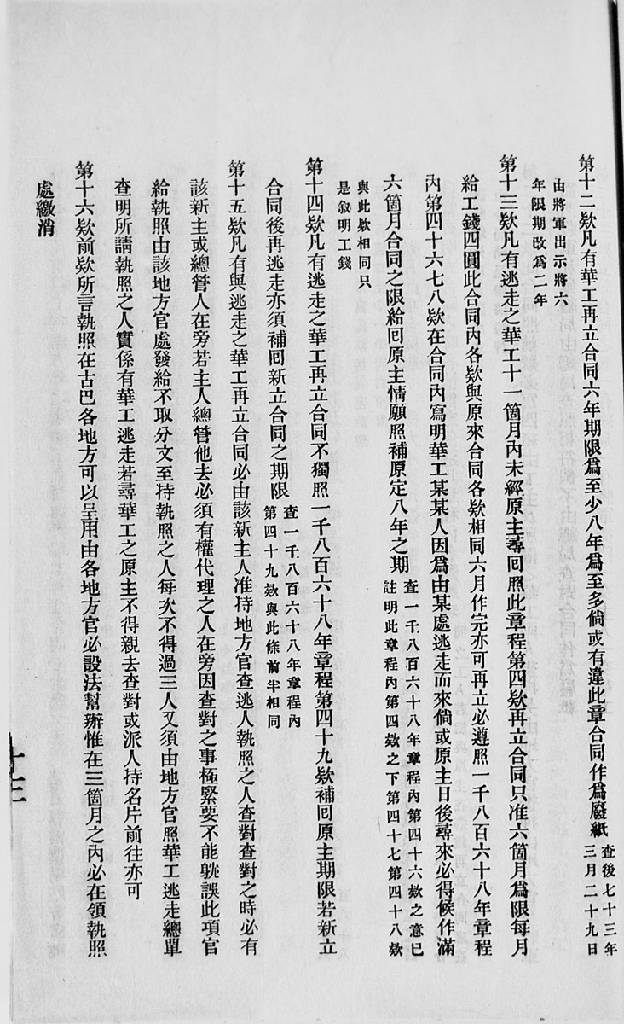 第十二欵凡有華工再立合同六年期限爲至少八年爲至多倘或有違此章合同作爲廢紙查後七十三年三月二十九日
由將軍出示將六年限期改爲二年
第十三欵凡有逃走之華工十一箇月內未經原主尋回照此章程第四欵再立合同只准六箇月爲限每月
給工錢四圓此合同內各欵與原來合同各欵相同六月作完亦可再立必遵照一千八百六十八年章程
內第四十六七八欵在合同內寫明華工某某人因爲由某處逃走而來倘或原主日後尋來必得候作滿
六箇月合同之限給回原主情願照補原定八年之期查一千八百六十八年章程內第四十六欵之意已註明此章程內第四欵之下第四十七第四十八欵
與此欵相同只是叙明工錢
第十四欵凡有逃走之華工再立合同不獨照一千八百六十八年章程第四十九欵補回原主期限若新立
合同後再逃走亦須補回新立合同之期限查一千八百六十八年章程內第四十九欵與此條前半相同
第十五欵凡有與逃走之華工再立合同必由該新主人准持地方官查逃人執照之人查對查對之時必有
該新主或總管人在旁若主人總管他去必須有權代理之人在旁因查對之事極緊要不能躭誤此項官
給執照由該地方官處發給不取分文至持執照之人每次不得過三人又須由地方官照華工逃走總單
查明所請執照之人實係有華工逃走若尋華工之原主不得親去查對或派人持名片前往亦可
第十六欵前欵所言執照在古巴各地方可以呈用由各地方官必設法幫辦惟在三箇月之內必在領執照
處繳消
十三